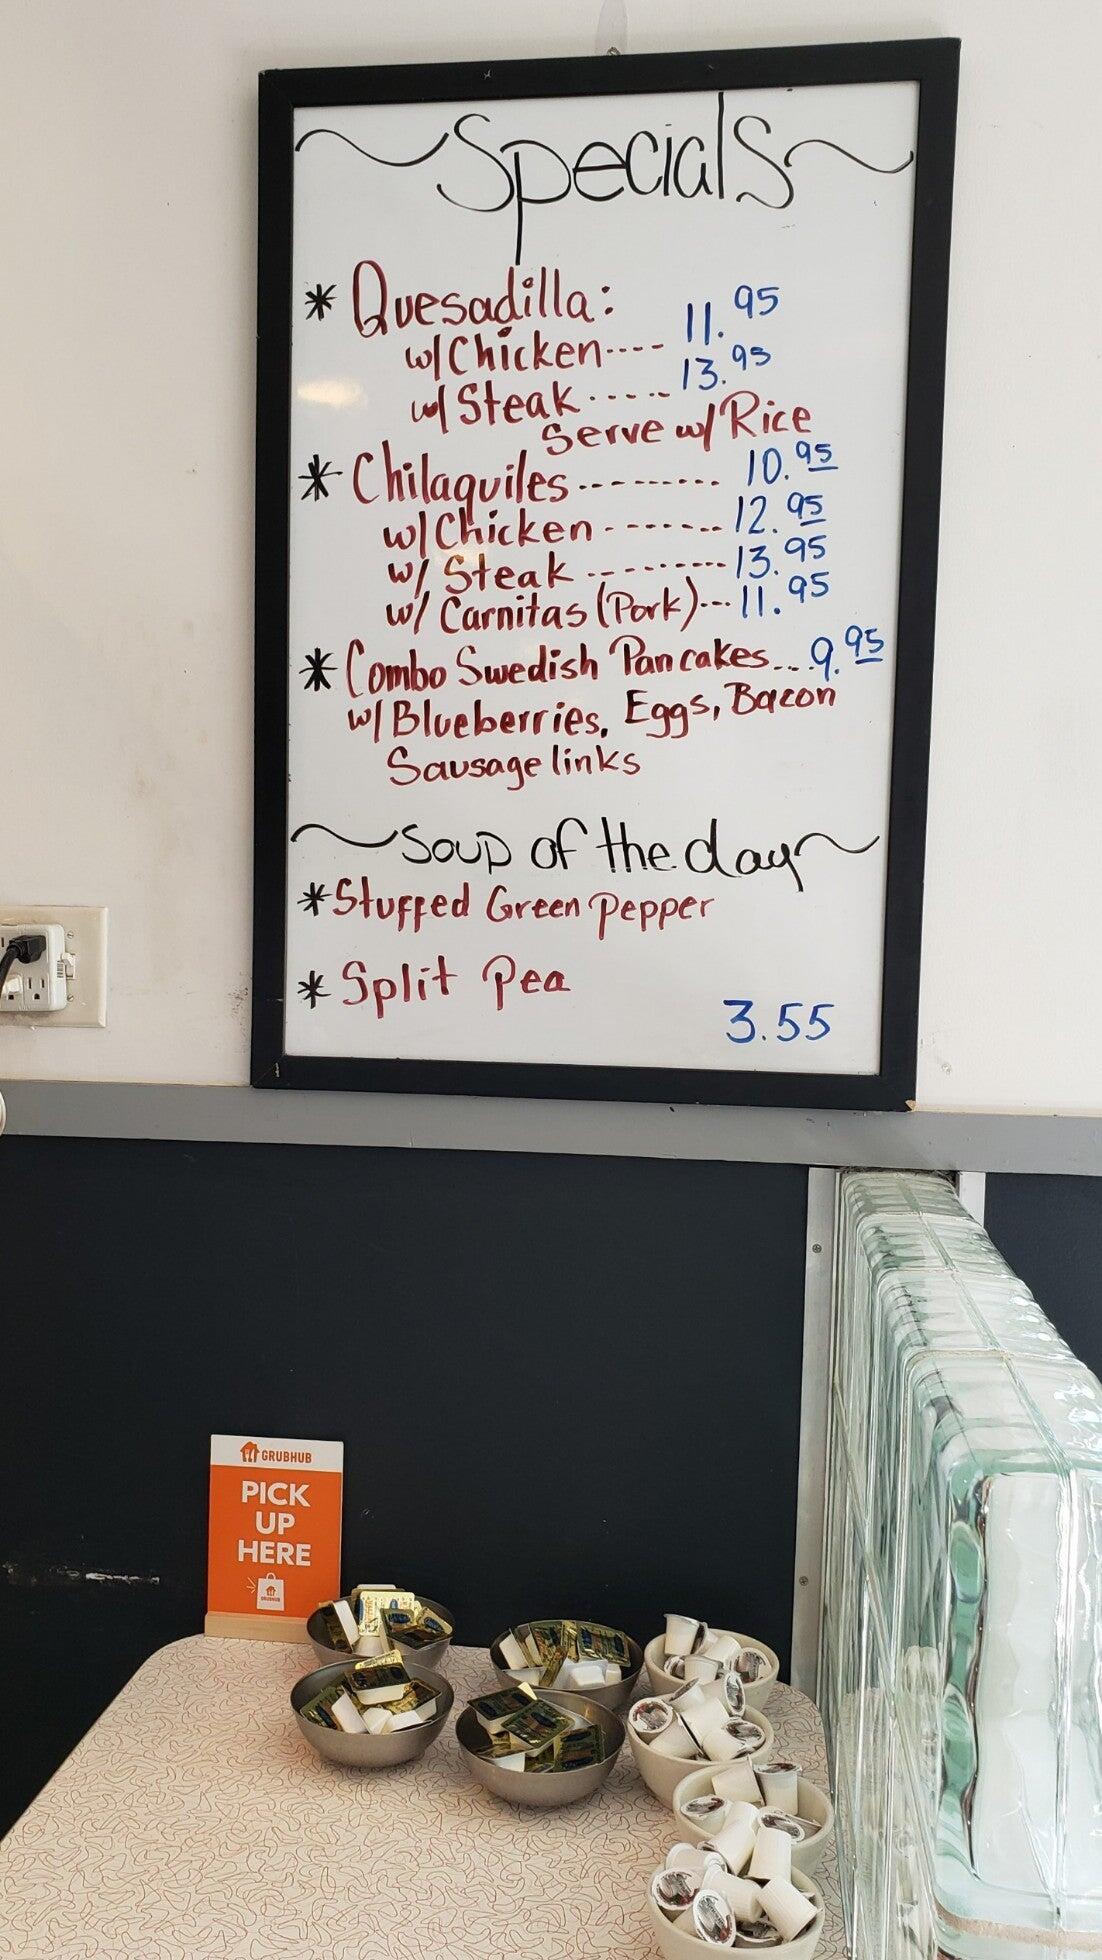 ~Specials~
* Quesadilla:
w/Chicken---- 11.95
w/Steak----- 13.95
Serve w/Rice
* Chilaquiles--------- 10.95
w/Chicken------- 12.95
w/ Steak --------- 13.95
w/ Carnitas (Pork)--- 11.95
* Combo Swedish Pancakes... 9.95
w/Blueberries, Eggs, Bacon
Sausage links
~Soup of the day~
* Stuffed Green Pepper
* Split Pea
3.55
GRUBHUB
PICK
UP
HERE
GRUBHUB